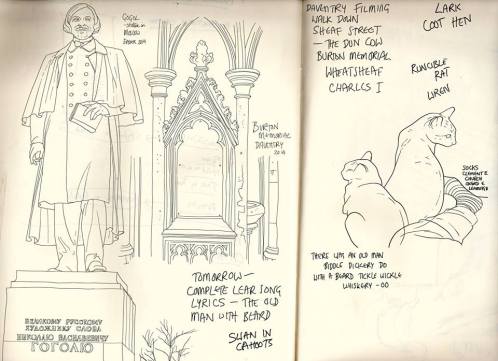 GOGOL
-STATUE IN
MOSCOW
EASTER 2014
BURTON
MEMORIAL
DAVENTRY
2014
ВЕЛИКОМУ РУССКОМУ
ХУДОЖНИКУ СЛОВА
НИКОЛАЮ ВАСИЛЬЕВИЧУ
ГОГОЛЮ
TOMORROW —
COMPLETE LEAR SONG
LYRICS — THE OLD
MAN WITH BEARD
SWAN IN
CAHOOTS
DAVENTRY FILMING
WALK DOWN
SHEAF STREET
— THE DUN COW
BURTON MEMORIAL
WHEATSHEAF
CHARLES I
LARK
COOT HEN
RUNCIBLE
RAT
WREN
SOCKS
CHURCH
THERE WAS AN OLD MAN
DIDDLE DICKERY DO
WITH A BEARD TICKLE WICKLE
WHISKERY - OO